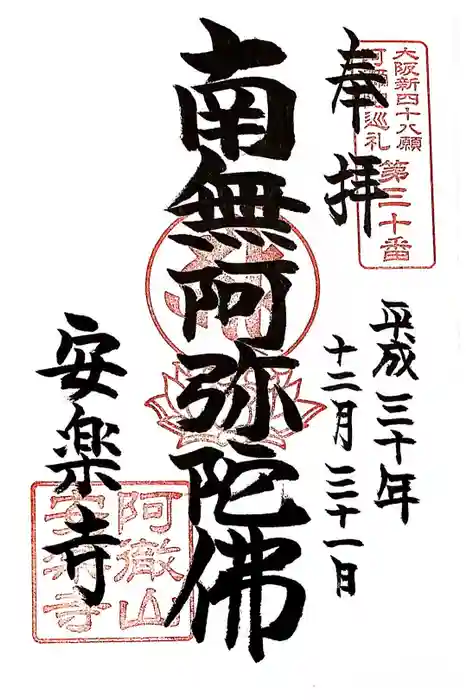 大阪新四十八願
阿弥陀巡礼
第三十番
奉拝
平成三十年
十二月三十一日
南無阿弥陀佛
安楽寺
阿徹山
安楽寺